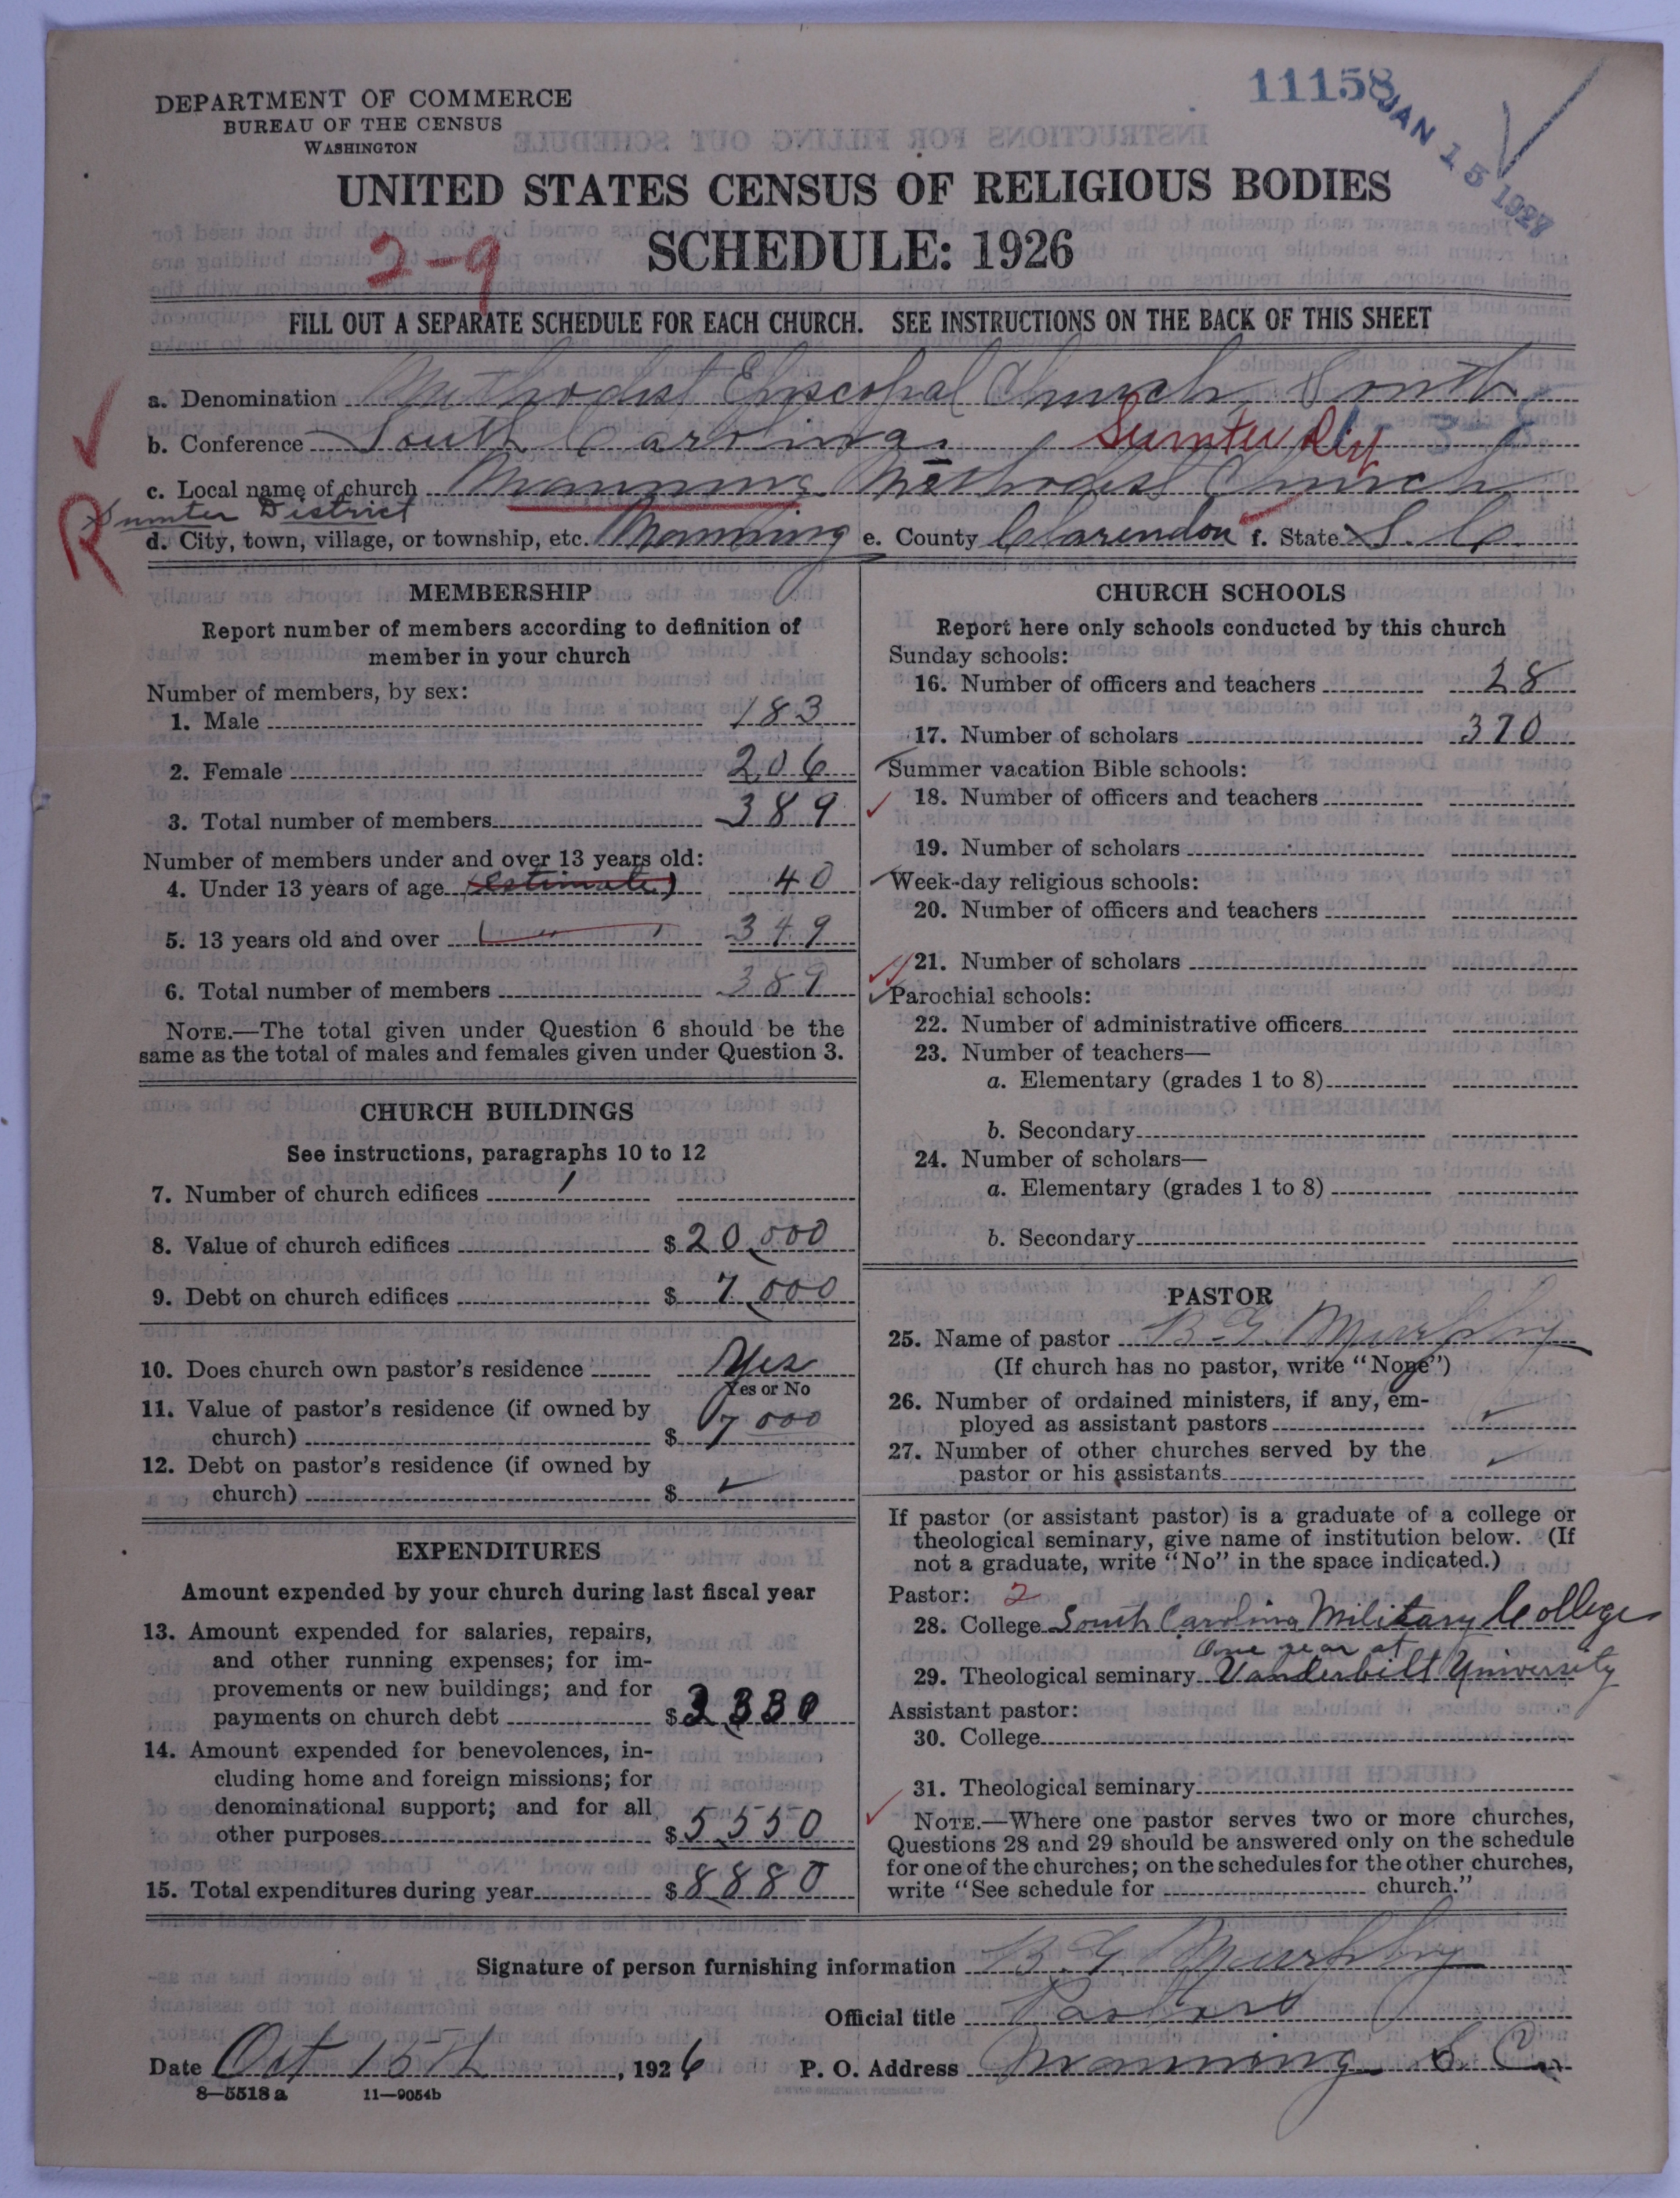 11158
JAN 15 1927
DEPARTMENT OF COMMERCE
BUREAU OF THE CENSUS
WASHINGTON
UNITED STATES CENSUS OF RELIGIOUS BODIES
2-9
SCHEDULE: 1926
FILL OUT A SEPARATE SCHEDULE FOR EACH CHURCH. SEE INSTRUCTIONS ON THE BACK OF THIS SHEET
a. Denomination Methodist Episcopal Church, South
b. Conference South Carolina. Sumter Dist
c. Local name of church Manning Methodist Church
R Sumter District
d. City, town, village, or township, etc. Manning e. County Clarendon f. State S. C.
MEMBERSHIP
Report number of members according to definition of
member in your church
Number of members, by sex:
1. Male 183
2. Female 206
3. Total number of members 389
Number of members under and over 13 years old:
4. Under 13 years of age (estimate) 40
5. 13 years old and over 349
6. Total number of members 389
NOTE.—The total given under Question 6 should be the
same as the total of males and females given under Question 3.
CHURCH BUILDINGS
See instructions, paragraphs 10 to 12
7. Number of church edifices 1
8. Value of church edifices $20,000
9. Debt on church edifices $7,000
10. Does church own pastor's residence Yes
Yes or No
11. Value of pastor's residence (if owned by
church) $7000
12. Debt on pastor's residence (if owned by
church) $ ✓
EXPENDITURES
Amount expended by your church during last fiscal year
13. Amount expended for salaries, repairs,
and other running expenses; for im-
provements or new buildings; and for
payments on church debt $3,330
14. Amount expended for benevolences, in-
cluding home and foreign missions; for
denominational support; and for all
other purposes $5550
15. Total expenditures during year $8,880
CHURCH SCHOOLS
Report here only schools conducted by this church
Sunday schools:
16. Number of officers and teachers 28
17. Number of scholars 370
Summer vacation Bible schools:
18. Number of officers and teachers
19. Number of scholars
Week-day religious schools:
20. Number of officers and teachers
21. Number of scholars
Parochial schools:
22. Number of administrative officers
23. Number of teachers—
a. Elementary (grades 1 to 8)
b. Secondary
24. Number of scholars—
a. Elementary (grades 1 to 8)
b. Secondary
PASTOR
25. Name of pastor B. G. Murphy
(If church has no pastor, write "None")
26. Number of ordained ministers, if any, em-
ployed as assistant pastors ✓
27. Number of other churches served by the
pastor or his assistants ✓
If pastor (or assistant pastor) is a graduate of a college or
theological seminary, give name of institution below. (If
not a graduate, write "No" in the space indicated.)
Pastor: 2
28. College South Carolina Military College
One year at
29. Theological seminary Vanderbilt University
Assistant pastor:
30. College
31. Theological seminary
NOTE.—Where one pastor serves two or more churches,
Questions 28 and 29 should be answered only on the schedule
for one of the churches; on the schedules for the other churches,
write "See schedule for church."
Signature of person furnishing information B. G. Murphy
Official title Pastor
Date Oct 15th, 1926 P. O. Address Manning S. C.
8—5518 a 11—9054b